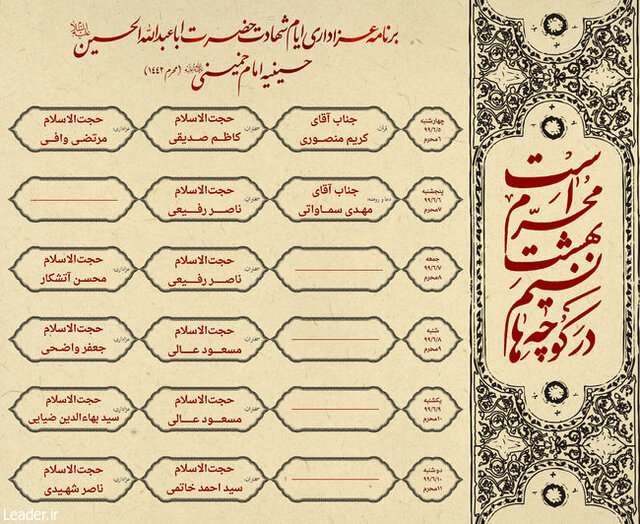 برنامه عزاداری ایام شهادت حضرت اباعبدالله الحسین علیه‌السلام
حسینیه امام خمینی (محرم ۱۴۴۲)
چهارشنبه
۹۹/۶/۵
۶محرم
قرآن:
جناب آقای
کریم منصوری
سخنران:
حجت‌الاسلام
کاظم صدیقی
عزاداری:
حجت‌الاسلام
مرتضی وافی
پنجشنبه
۹۹/۶/۶
۷محرم
دعا و روضه:
جناب آقای
مهدی سماواتی
سخنران:
حجت‌الاسلام
ناصر رفیعی
جمعه
۹۹/۶/۷
۸محرم
سخنران:
حجت‌الاسلام
ناصر رفیعی
عزاداری:
حجت‌الاسلام
محسن آتشکار
شنبه
۹۹/۶/۸
۹محرم
سخنران:
حجت‌الاسلام
مسعود عالی
عزاداری:
حجت‌الاسلام
جعفر واضحی
یکشنبه
۹۹/۶/۹
۱۰محرم
سخنران:
حجت‌الاسلام
مسعود عالی
عزاداری:
حجت‌الاسلام
سید بهاءالدین ضیایی
دوشنبه
۹۹/۶/۱۰
۱۱محرم
سخنران:
حجت‌الاسلام
سید احمد خاتمی
عزاداری:
حجت‌الاسلام
ناصر شهیدی
در کوچه‌ها
نسیم
بهشت
محرم
است
Leader.ir